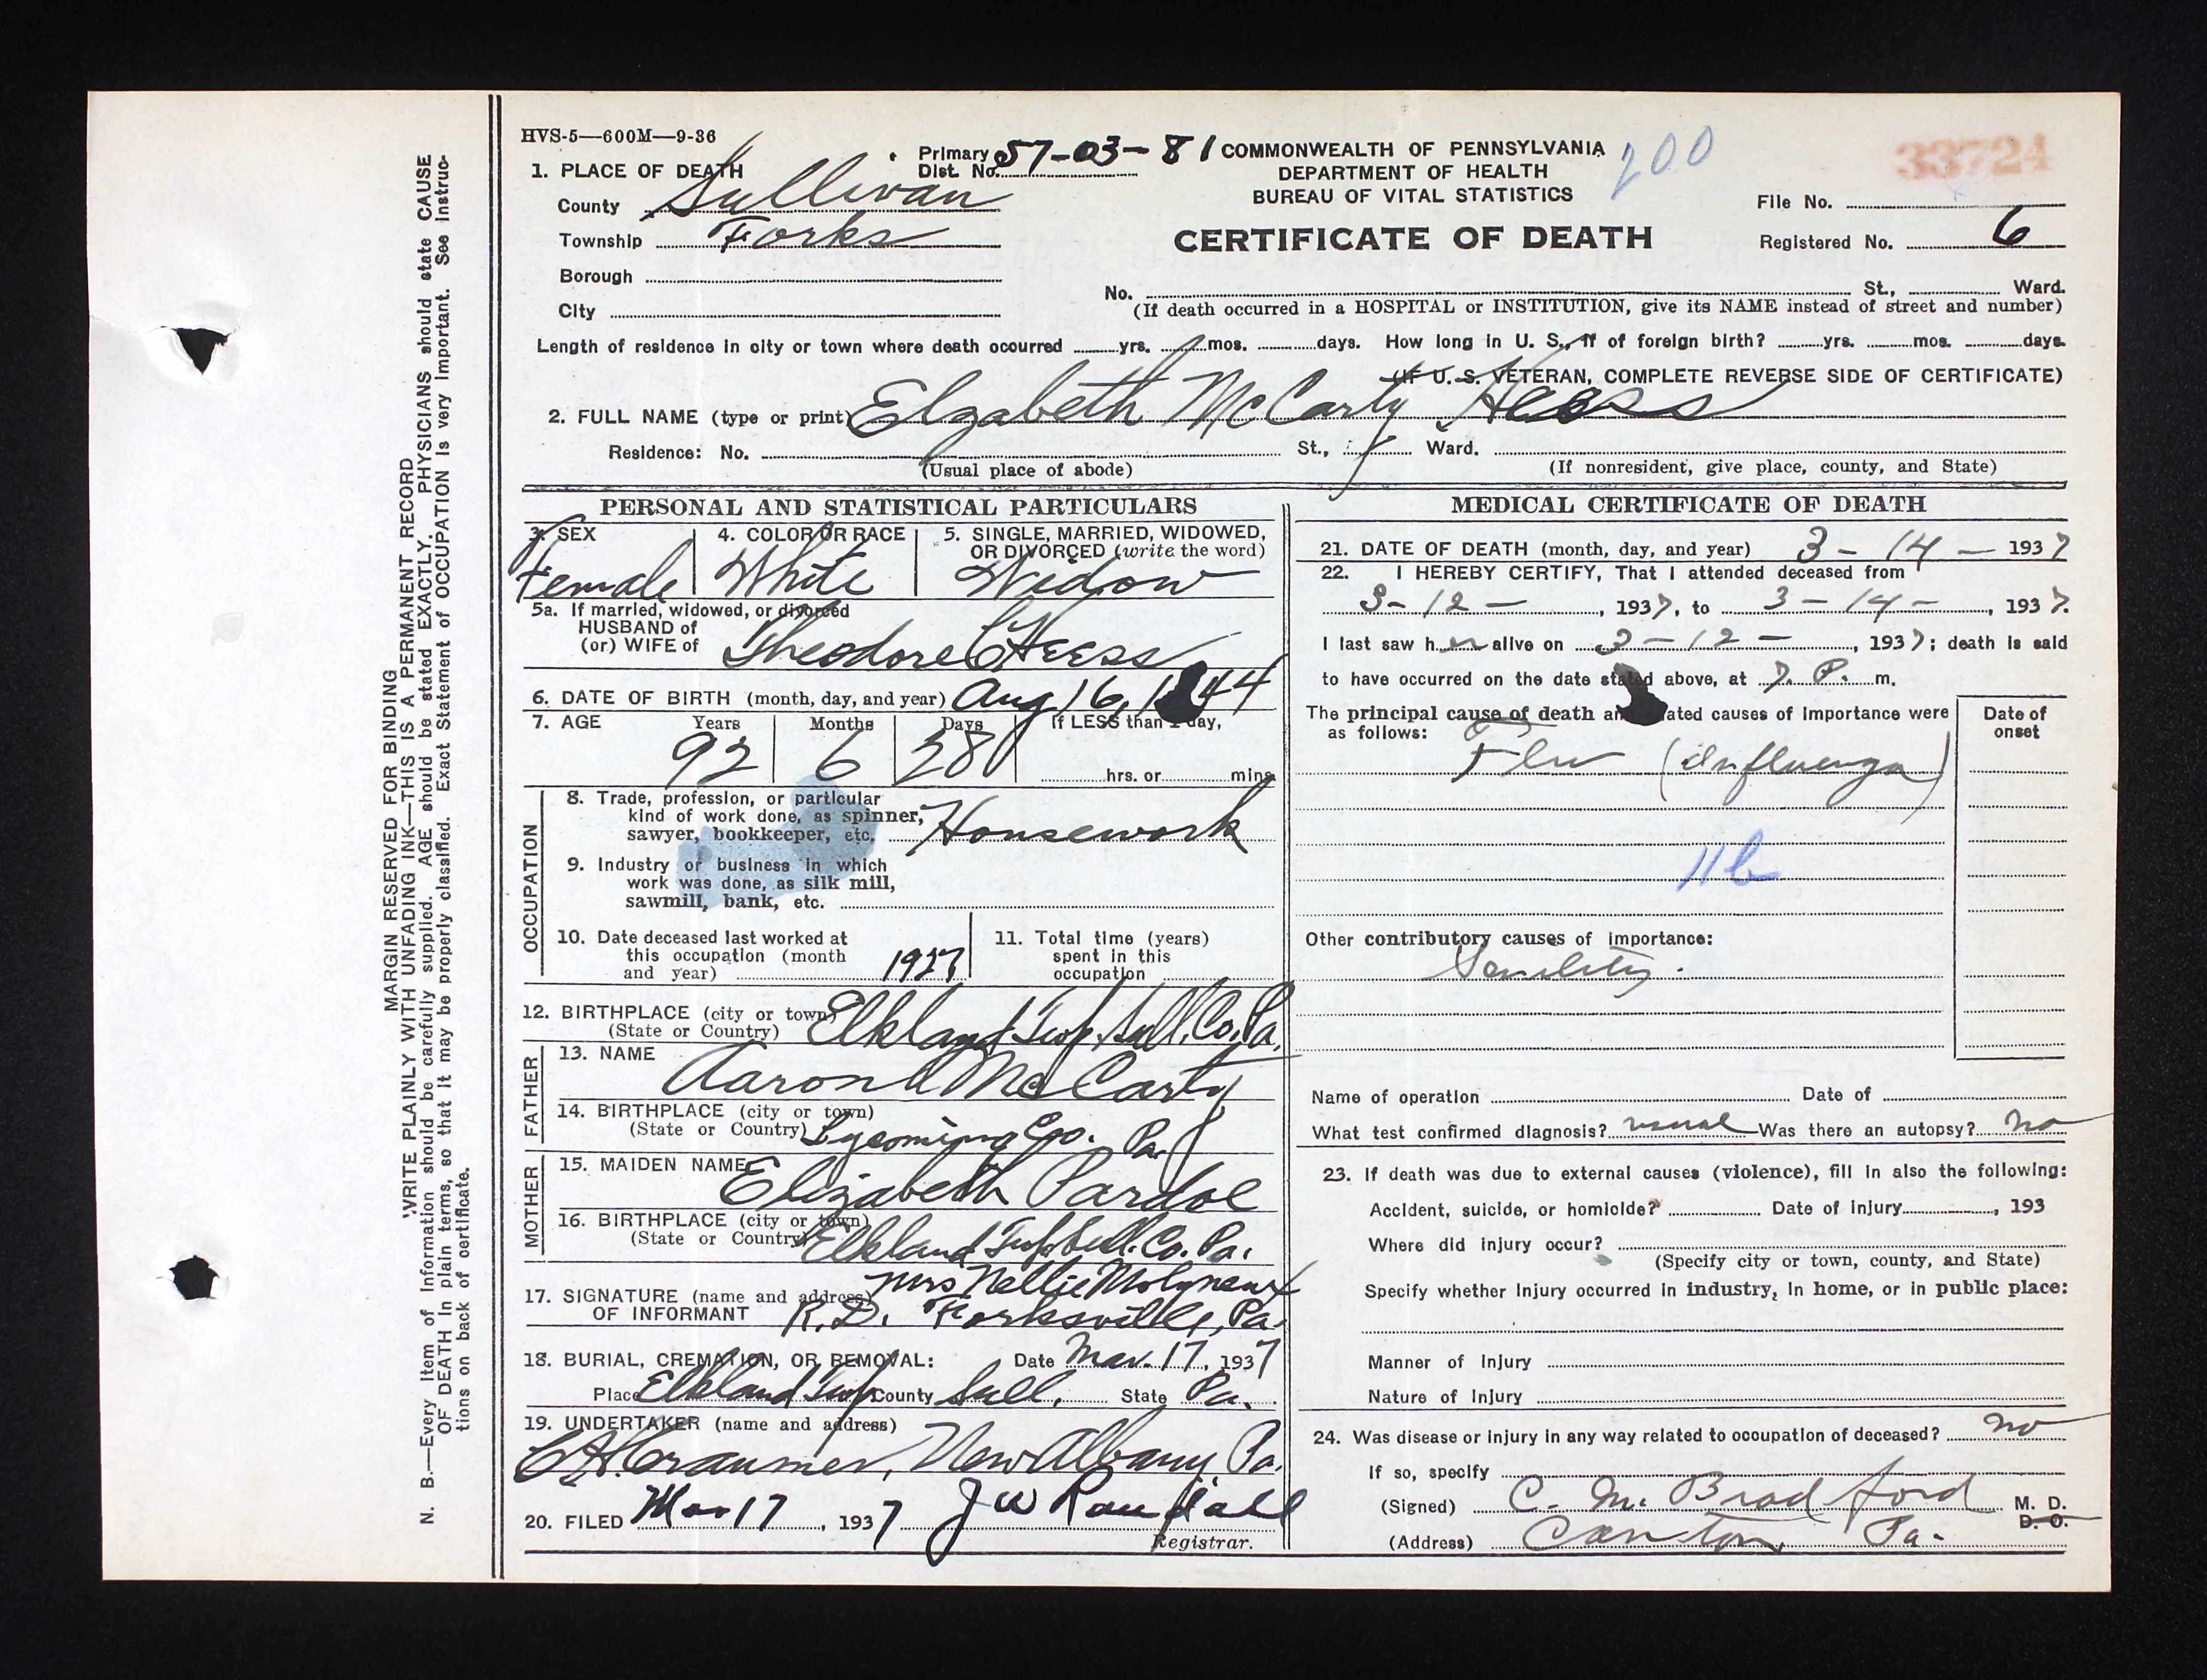 HVS-5—600M—9-36
Primary Dist. No. 57-03-81
COMMONWEALTH OF PENNSYLVANIA
DEPARTMENT OF HEALTH
BUREAU OF VITAL STATISTICS
CERTIFICATE OF DEATH
200
33724
File No.
Registered No. 6
1. PLACE OF DEATH
County Sullivan
Township Forks
Borough
City
No. St., Ward.
(If death occurred in a HOSPITAL or INSTITUTION, give its NAME instead of street and number)
Length of residence in city or town where death occurred yrs. mos. days. How long in U. S., if of foreign birth? yrs. mos. days.
(IF U. S. VETERAN, COMPLETE REVERSE SIDE OF CERTIFICATE)
2. FULL NAME (type or print) Elzabeth McCarty Heess
Residence: No. St., Ward.
(Usual place of abode) (If nonresident, give place, county, and State)
PERSONAL AND STATISTICAL PARTICULARS
3. SEX 4. COLOR OR RACE 5. SINGLE, MARRIED, WIDOWED, OR DIVORCED (write the word)
Female White Widow
5a. If married, widowed, or divorced
HUSBAND of
(or) WIFE of Theodore C Heess
6. DATE OF BIRTH (month, day, and year) Aug 16, 1844
7. AGE Years Months Days If LESS than 1 day,
92 6 28 hrs. or mins.
OCCUPATION
8. Trade, profession, or particular
kind of work done, as spinner,
sawyer, bookkeeper, etc. Housework
9. Industry or business in which
work was done, as silk mill,
sawmill, bank, etc.
10. Date deceased last worked at
this occupation (month
and year) 1927
11. Total time (years)
spent in this
occupation
12. BIRTHPLACE (city or town) Elkland Twp. Sull. Co. Pa.
(State or Country)
FATHER
13. NAME Aaron McCarty
14. BIRTHPLACE (city or town)
(State or Country) Lycoming Co. Pa.
MOTHER
15. MAIDEN NAME Elizabeth Pardoe
16. BIRTHPLACE (city or town)
(State or Country) Elkland Twp Sull. Co. Pa.
17. SIGNATURE (name and address) Mrs Nellie Molyneux
OF INFORMANT R.D. Forksville, Pa.
18. BURIAL, CREMATION, OR REMOVAL: Date Mar. 17, 1937
Place Elkland Twp County Sull. State Pa.
19. UNDERTAKER (name and address)
New Albany Pa.
20. FILED Mar 17, 1937 J W Randall
Registrar.
MEDICAL CERTIFICATE OF DEATH
21. DATE OF DEATH (month, day, and year) 3-14-1937
22. I HEREBY CERTIFY, That I attended deceased from
3-12-, 1937, to 3-14-, 1937.
I last saw her alive on 3-12-, 1937; death is said
to have occurred on the date stated above, at 7 P. m.
The principal cause of death and related causes of importance were
as follows:
Date of onset
Flu (Influenza)
11b
Other contributory causes of importance:
Senility.
Name of operation Date of
What test confirmed diagnosis? usual Was there an autopsy? no
23. If death was due to external causes (violence), fill in also the following:
Accident, suicide, or homicide? Date of injury, 193
Where did injury occur?
(Specify city or town, county, and State)
Specify whether injury occurred in industry, in home, or in public place:
Manner of injury
Nature of injury
24. Was disease or injury in any way related to occupation of deceased? no
If so, specify
(Signed) C. M. Bradford M. D.
D. O.
(Address) Canton Pa.
MARGIN RESERVED FOR BINDING
WRITE PLAINLY WITH UNFADING INK—THIS IS A PERMANENT RECORD
N. B.—Every item of information should be carefully supplied. AGE should be stated EXACTLY. PHYSICIANS should state CAUSE
OF DEATH in plain terms, so that it may be properly classified. Exact Statement of OCCUPATION is very important. See instruc-
tions on back of certificate.